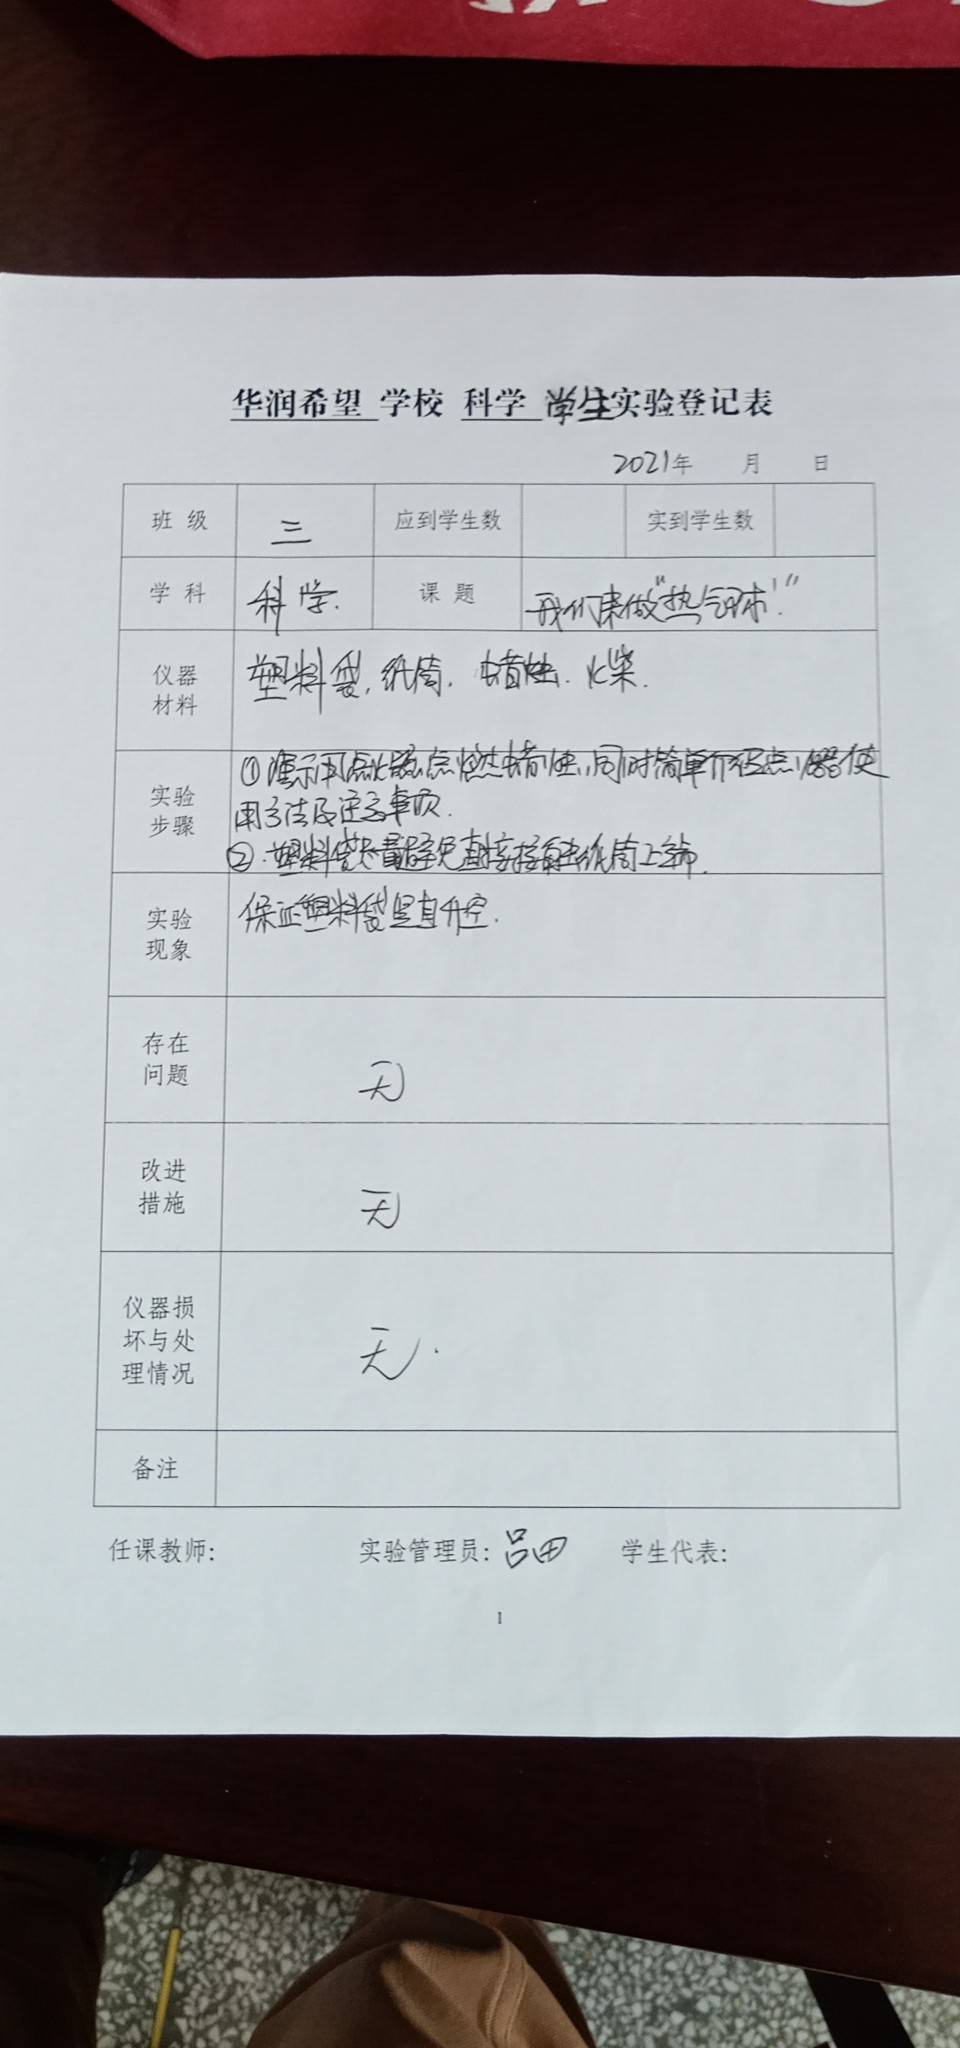 华润希望 学校 科学 学生实验登记表
2021年 月 日
班级 三 应到学生数 实到学生数
学科 科学. 课题 我们来做"热气球!"
仪器材料 塑料袋, 纸筒. 蜡烛. 火柴.
实验步骤 ①演示用点火器点燃蜡烛,同时简单介绍点火器使
用方法及注意事项.
②.塑料袋尽量避免直接接触纸筒上端.
实验现象 保证塑料袋竖直升空.
存在问题 无
改进措施 无
仪器损坏与处理情况 无.
备注
任课教师: 实验管理员: 吕田 学生代表:
1